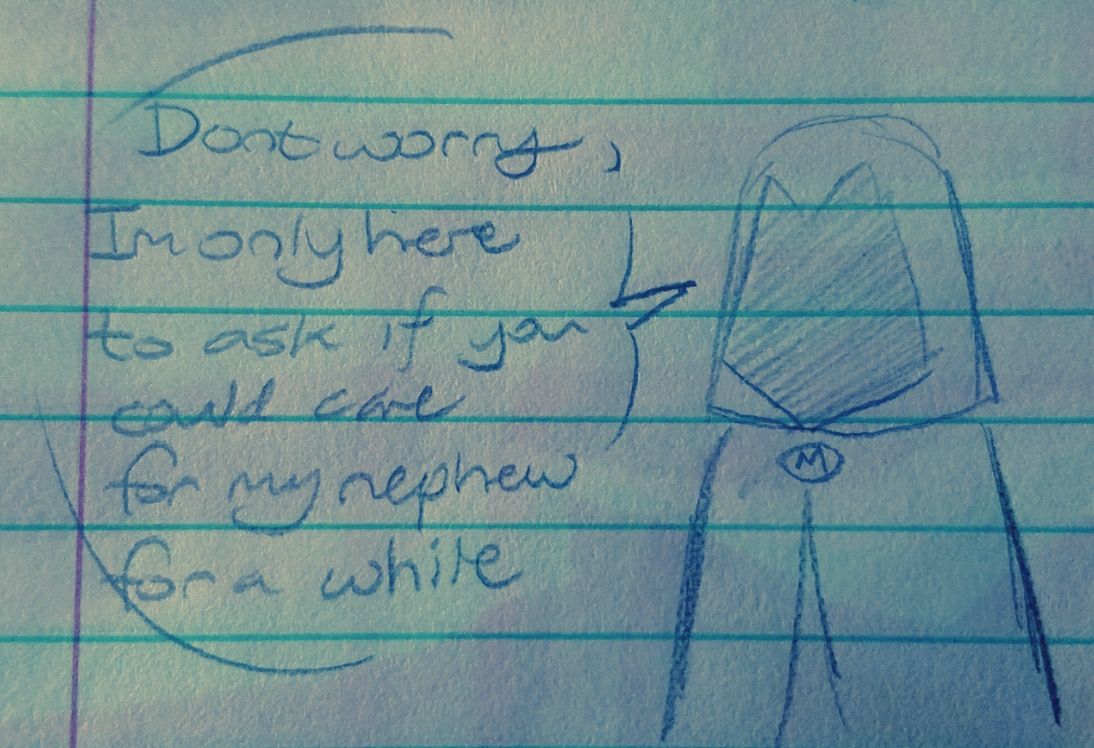 Dont worry,
Im only here
to ask if you
could care
for my nephew
for a while
M